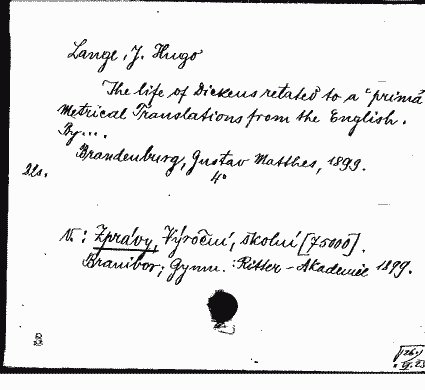 Lange, J. Hugo
The life of Dickens retated to a "primā
Metrical Translations from the English.
By....
Brandenburg, Gustav Matthes, 1899.
4°
V: Zprávy, Výroční, školní [75000].
Branibor; Gymn.: Ritter-Akademie 1899.